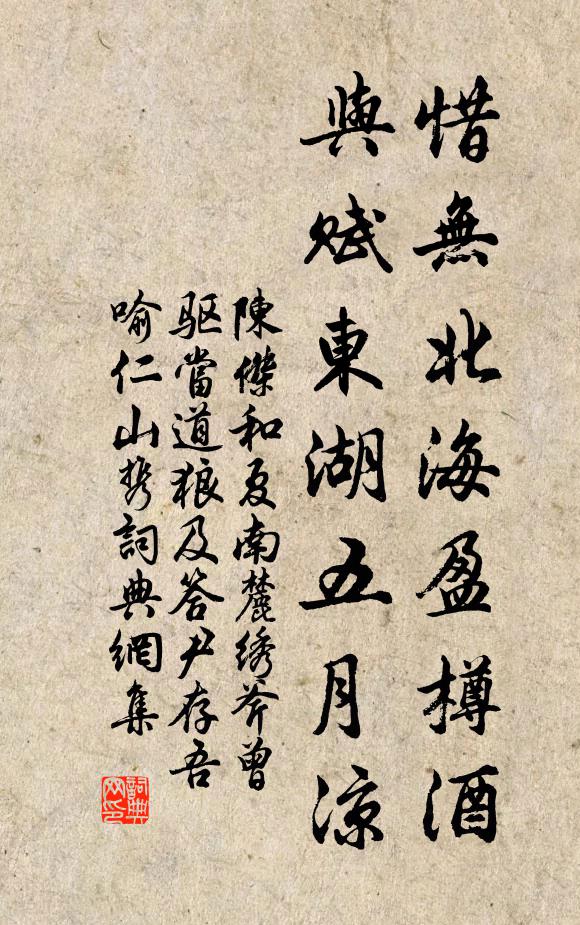 惜無北海盈樽酒
與賦東湖五月涼
陳傑和夏南麓綉斧曾
驱當道狼及答尹存吾
喻仁山携詞典網集
詞典
网印